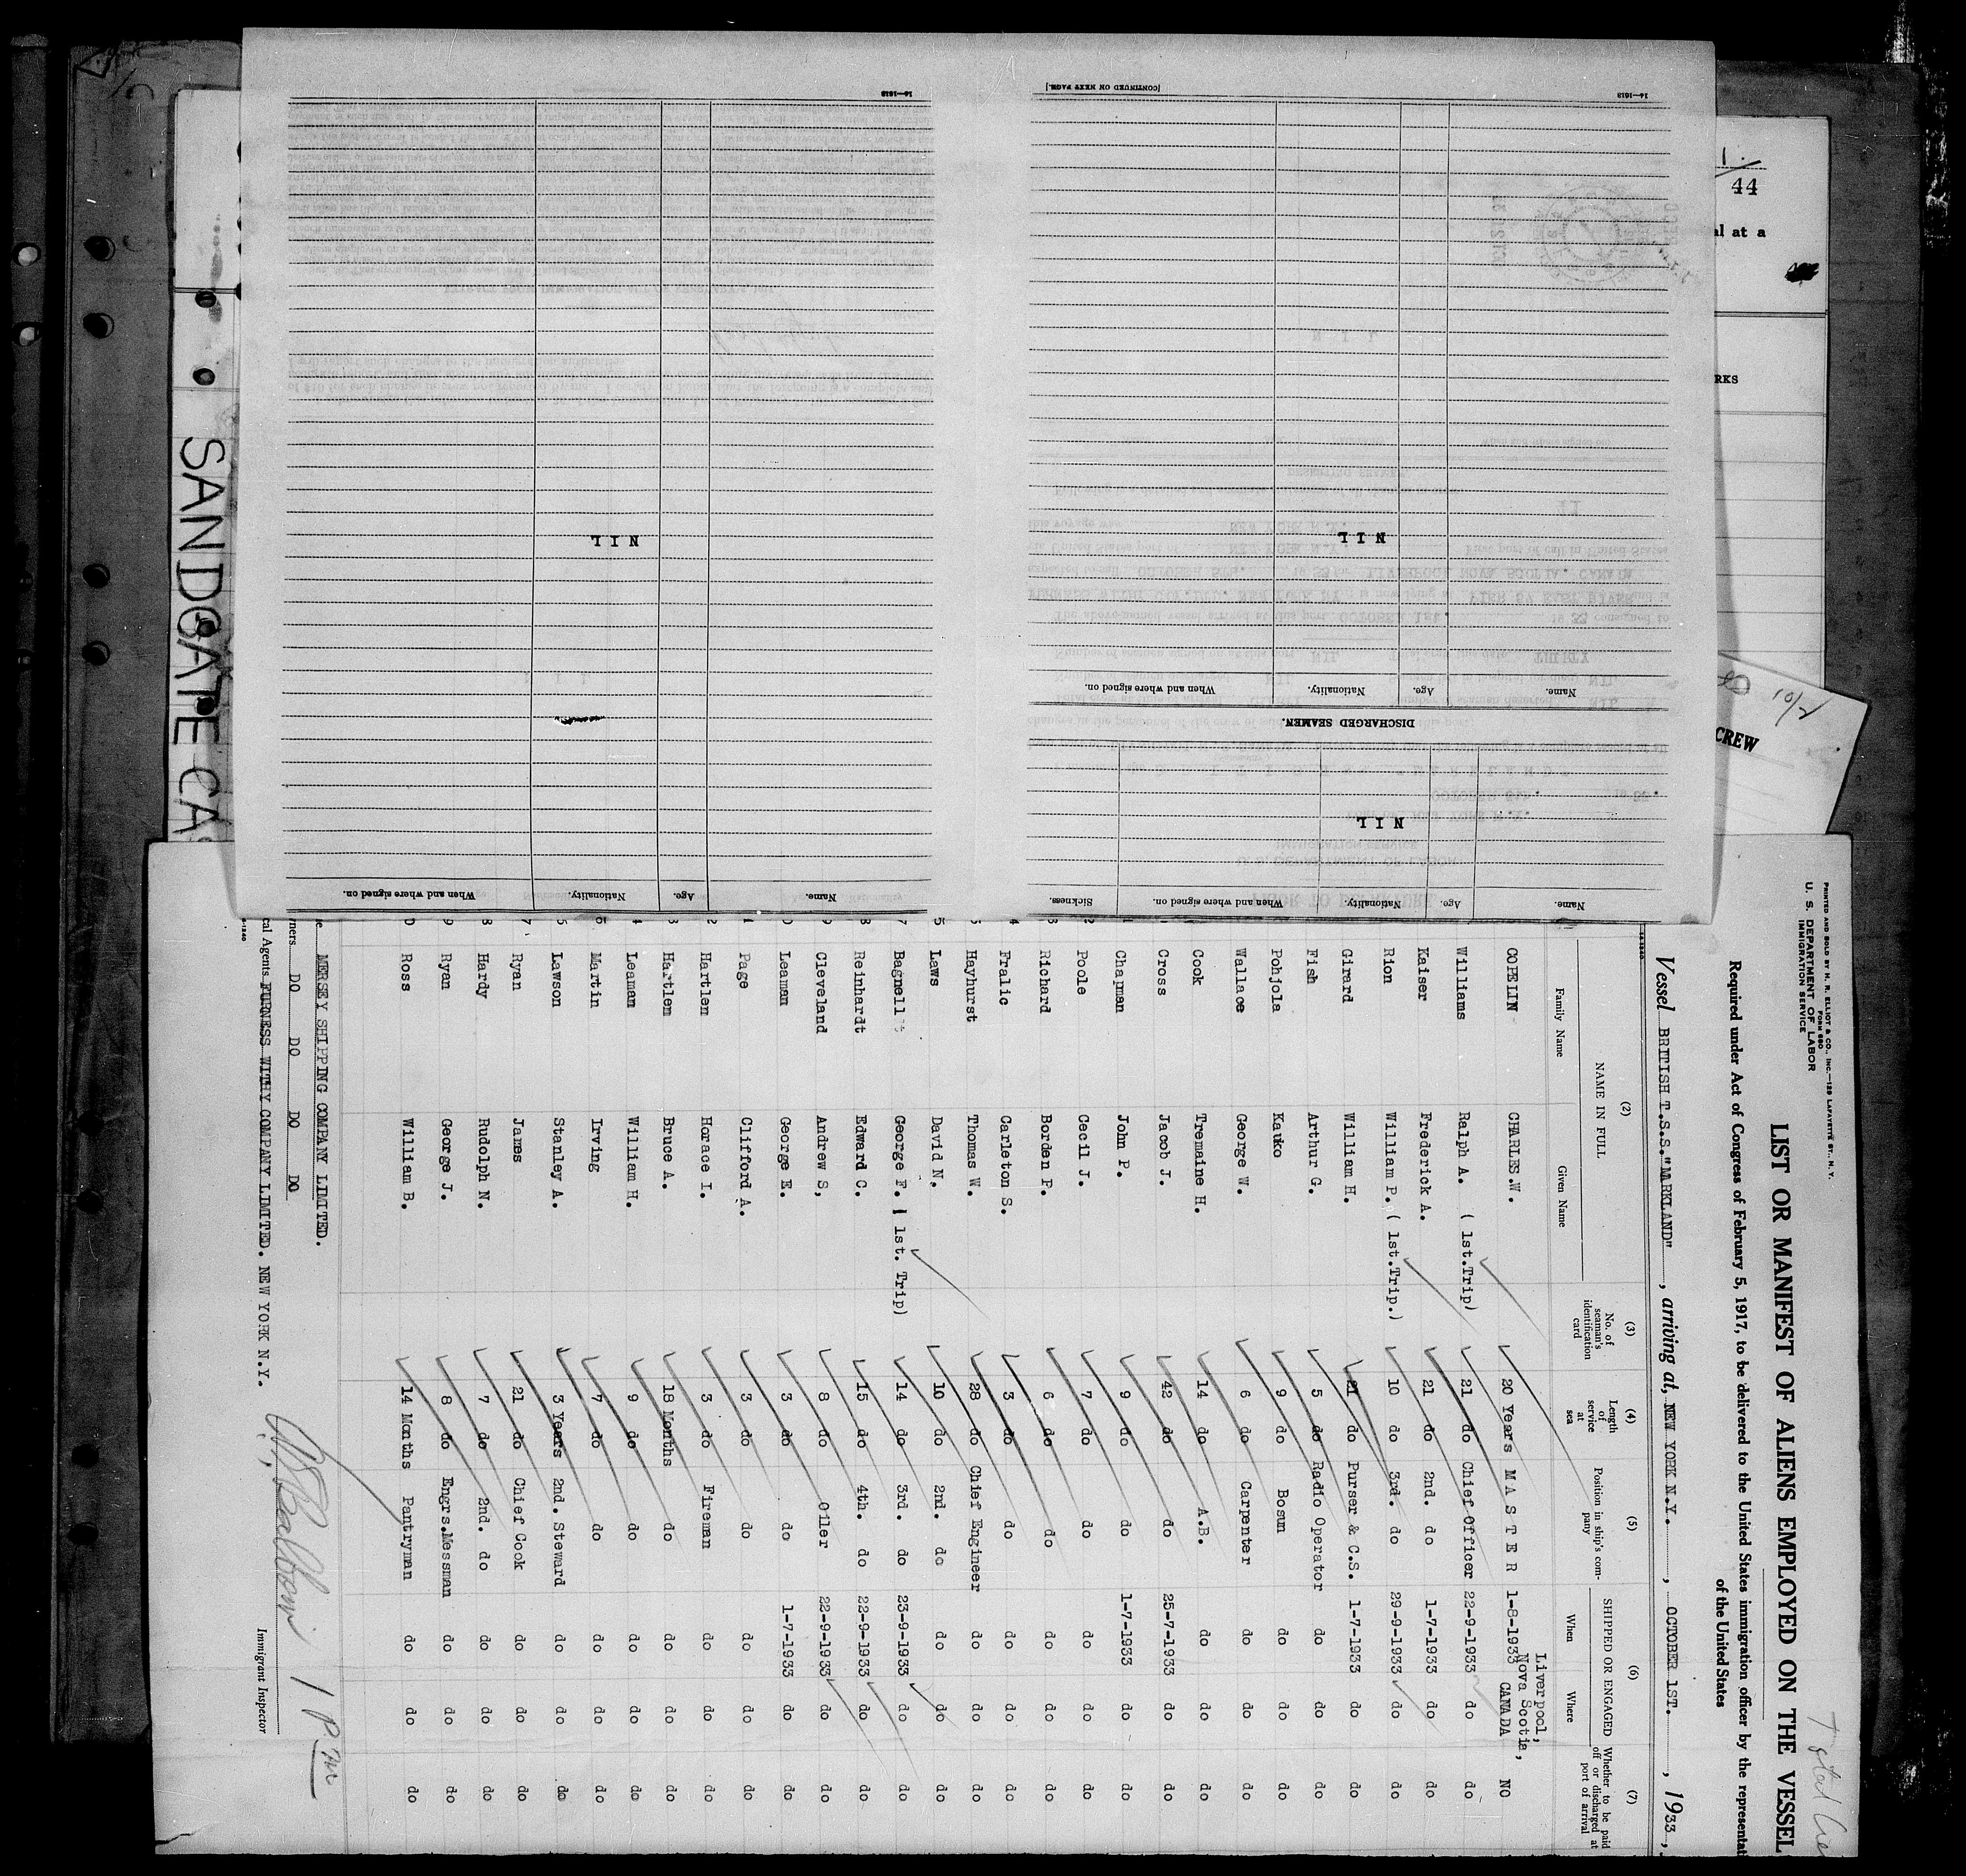 PRINTED AND SOLD BY H. R. ELLIOT & CO., INC.—129 LAFAYETTE ST., N. Y.
FORM 680
U. S. DEPARTMENT OF LABOR
IMMIGRATION SERVICE
LIST OR MANIFEST OF ALIENS EMPLOYED ON THE VESSEL
Required under Act of Congress of February 5, 1917, to be delivered to the United States immigration officer by the representat
of the United States
Vessel BRITISH T.S.S."MARKLAND", arriving at, NEW YORK N.Y., OCTOBER 1ST., 1933,
(2) (3) (4) (5) (6) (7)
NAME IN FULL
Family Name Given Name
No. of seaman's identification card
Length of service at sea
Position in ship's company
SHIPPED OR ENGAGED
When Where
Whether to be paid off or discharged at port of arrival
Liverpool,
Nova Scotia,
COPELIN CHARLES.W. 20 Years M A S T E R 1-8-1933 CANADA NO
Williams Ralph A. ( 1st.Trip) 21 do Chief Officer 22-9-1933 do do
Kaiser Frederick A. 21 do 2nd. do 1-7-1933 do do
Rion William P. ( 1st.Trip.) 10 do 3rd. do 29-9-1933 do do
Girard William H. 21 do Purser & C.S. 1-7-1933 do do
Fish Arthur G. 5 do Radio Operator do do do
Pohjola Kauko 9 do Bosun do do do
Wallace George W. 6 do Carpenter do do do
Cook Tremaine H. 14 do A.B. do do do
Cross Jacob J. 42 do do 25-7-1933 do do
Chapman John P. 9 do do 1-7-1933 do do
Poole Cecil J. 7 do do do do do
Richard Borden P. 6 do do do do do
Fralic Carleton S. 3 do do do do do
Hayhurst Thomas W. 28 do Chief Engineer do do do
Laws David N. 10 do 2nd. do do do do
Bagnell George F. ( 1st. Trip) 14 do 3rd. do 23-9-1933 do do
Reinhardt Edward C. 15 do 4th. do 22-9-1933 do do
Cleveland Andrew S, 8 do Oiler 22-9-1933 do do
Leaman George E. 3 do do 1-7-1933 do do
Page Clifford A. 3 do do do do do
Hartlen Horace I. 3 do Fireman do do do
Hartlen Bruce A. 18 Months do do do do
Leaman William H. 9 do do do do do
Martin Irving 7 do do do do do
Lawson Stanley A. 3 Years 2nd. Steward do do do
Ryan James 21 do Chief Cook do do do
Hardy Rudolph N. 7 do 2nd. do do do do
Ryan George J. 8 do Engrs.Messman do do do
Ross William B. 14 Months Pantryman do do do
MERSEY SHIPPING COMPANY LIMITED.
ners DO DO DO DO
cal Agents FURNESS WITHY COMPANY LIMITED. NEW YORK N.Y.
1 Pm
Immigrant Inspector
Name. Age. Nationality. When and where signed on. Sickness.
N I L
DISCHARGED SEAMEN.
Name. Age. Nationality. When and where signed on.
N I L
[CONTINUED ON NEXT PAGE.]
14—1613
Name. Age. Nationality. When and where signed on.
N I L
14—1613
SANDGATE CAS
44
al at a
RKS
10/2
CREW